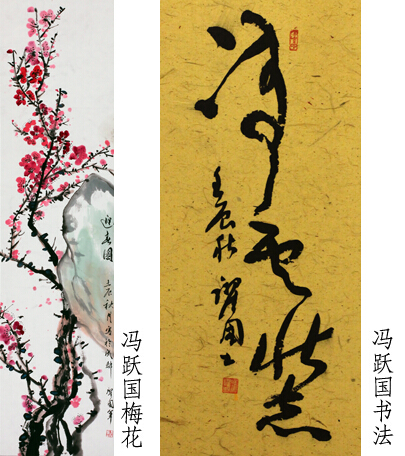 迎春图
壬辰秋月
冯跃国梅花
凌云壮志
壬辰秋
冯跃国书法